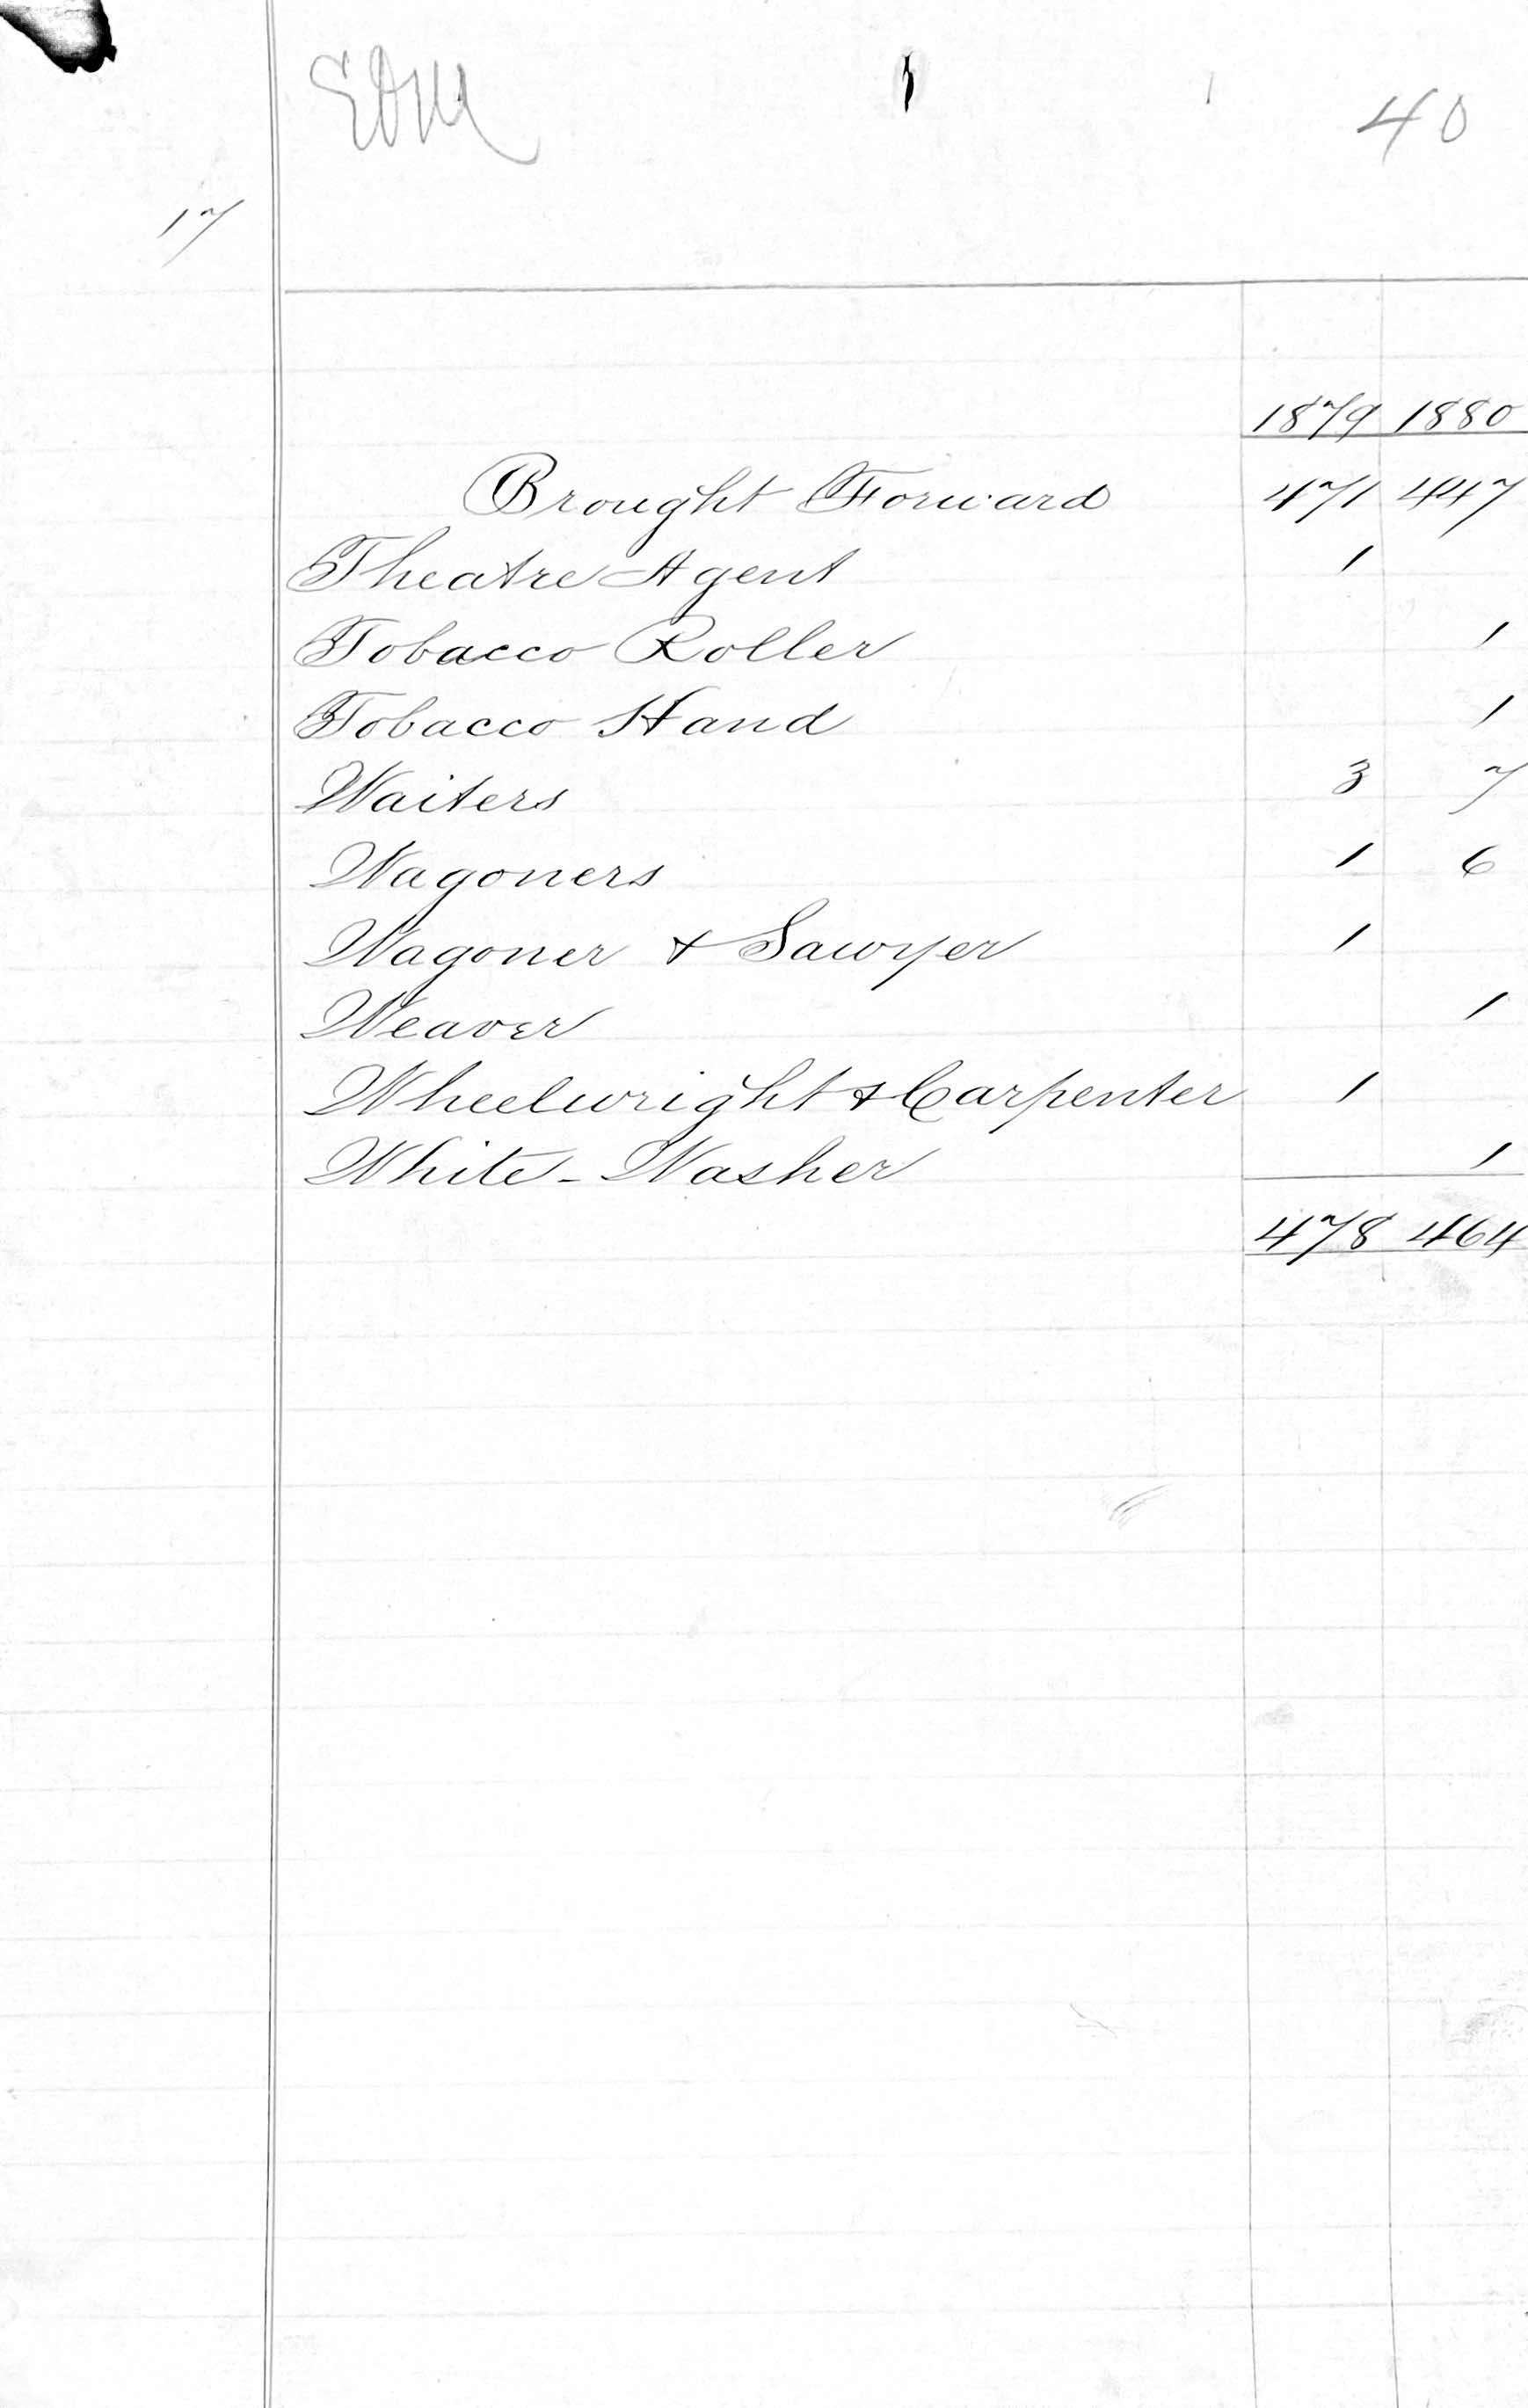 EDM 40
17
1879 1880
Brought Forward 471 447
Theatre Agent 1
Tobacco Roller 1
Tobacco Hand 1
Waiters 3 7
Wagoners 1 6
Wagoner & Sawyer 1
Weaver 1
Wheelwright & Carpenter 1
White-Washer 1
478 464